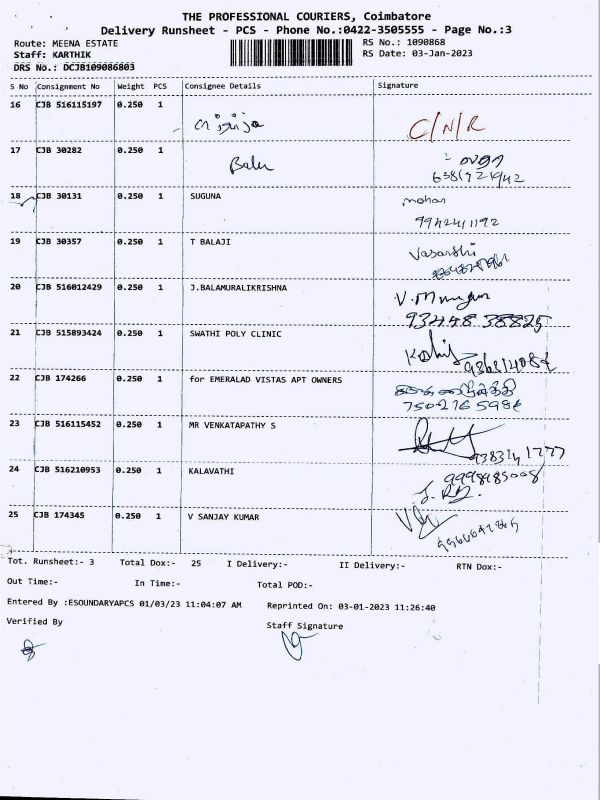 THE PROFESSIONAL COURIERS, Coimbatore
Delivery Runsheet - PCS - Phone No.:0422-3505555 - Page No.:3
Route: MEENA ESTATE
RS No.: 1090868
Staff: KARTHIK
RS Date: 03-Jan-2023
DRS No.: DCJB109086803
S No Consignment No Weight PCS Consignee Details Signature
16 CJB 516115197 0.250 1 C/N/R
17 CJB 30282 0.250 1 Balu
18 CJB 30131 0.250 1 SUGUNA mohan
9942411192
19 CJB 30357 0.250 1 T BALAJI Vasanthi
20 CJB 516012429 0.250 1 J.BALAMURALIKRISHNA V.Murugan
93448 38825
21 CJB 515893424 0.250 1 SWATHI POLY CLINIC
22 CJB 174266 0.250 1 for EMERALAD VISTAS APT OWNERS
23 CJB 516115452 0.250 1 MR VENKATAPATHY S
24 CJB 516210953 0.250 1 KALAVATHI
25 CJB 174345 0.250 1 V SANJAY KUMAR
Tot. Runsheet:- 3 Total Dox:- 25 I Delivery:- II Delivery:- RTN Dox:-
Out Time:- In Time:- Total POD:-
Entered By :ESOUNDARYAPCS 01/03/23 11:04:07 AM Reprinted On: 03-01-2023 11:26:40
Verified By Staff Signature